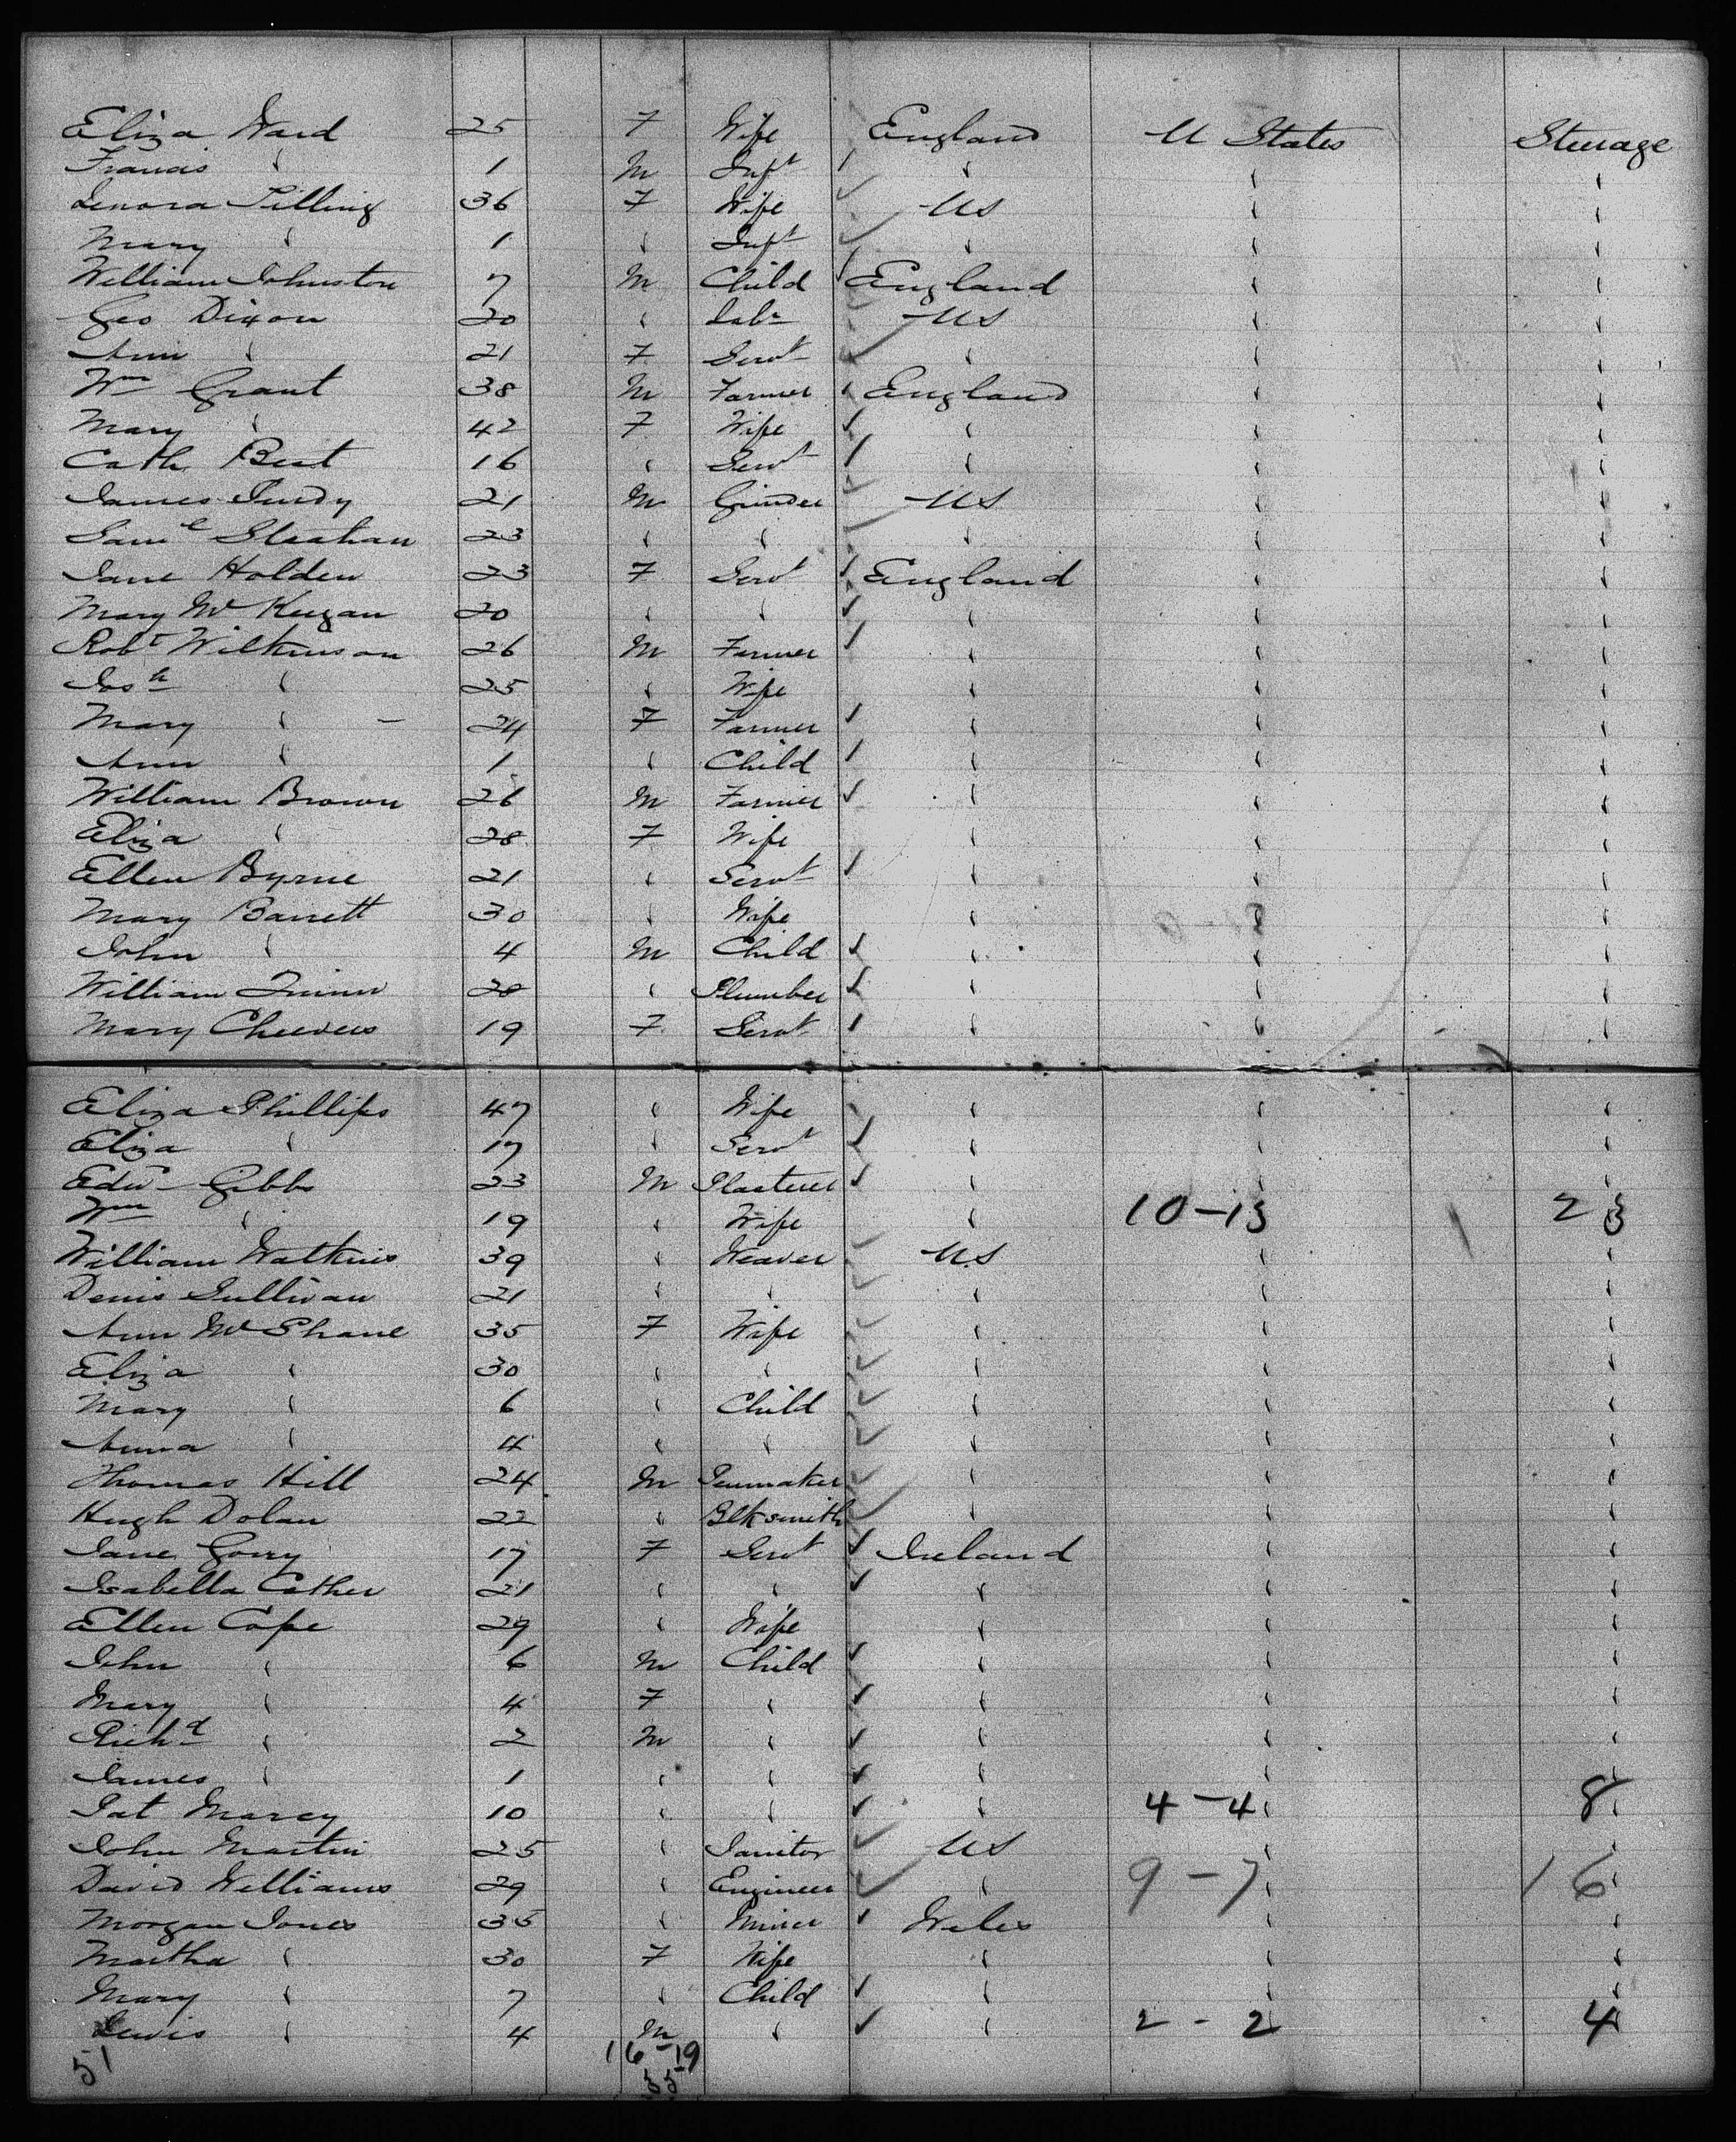 Eliza Ward 25 F Wife England U States Steerage
Francis " 1 M Inft " " "
Lenora Pilling 36 F Wife US " "
Mary " 1 " Inft " " "
William Johnston 7 M Child England " "
Geo Dixon 20 " Labr US " "
Ann " 21 F Servt " " "
Wm Grant 38 M Farmer England " "
Mary " 42 F Wife " " "
Cath Best 16 " Servt " " "
James Purdy 21 M Grinder US " "
Saml Strahan 23 " " " " "
Jane Holden 23 F Servt England " "
Mary Mc Keegan 20 " " " " "
Robt Wilkinson 26 M Farmer " " "
Josh " 25 " Wife " " "
Mary " - 24 F Farmer " " "
Ann " 1 " Child " " "
William Brown 26 M Farmer " " "
Eliza " 28 F Wife " " "
Ellen Byrne 21 " Servt " " "
Mary Barrett 30 " Wife " " "
John " 4 M Child " " "
William Quinn 20 " Plumber " " "
Mary Cheevers 19 F Servt " " "
Eliza Phillips 47 " Wife " " "
Eliza " 17 " Servt " " "
Edwd Gibbs 23 M Plasterer " " "
Wm " 19 " Wife " 10-13 23
William Watkins 39 " Weaver US " "
Denis Sullivan 21 " " " " "
Ann Mc Shane 35 F Wife " " "
Eliza " 30 " " " " "
Mary " 6 " Child " " "
Anna " 4 " " " " "
Thomas Hill 24 M Penmaker " " "
Hugh Dolan 22 " Blksmith " " "
Jane Gorry 17 F Servt Ireland " "
Isabella Cather 21 " " " " "
Ellen Cope 29 " Wife " " "
John " 6 M Child " " "
Mary " 4 F " " " "
Richd " 2 M " " " "
James " 1 " " " " "
Pat Marcy 10 " " " 4-4 8
John Martin 25 " Janitor US " "
David Williams 29 " Engineer " 9-7 16
Morgan Jones 35 " Miner Wales " "
Martha " 30 F Wife " " "
Mary " 7 " Child " " "
Lewis " 4 M " " 2-2 4
51 16-19
55